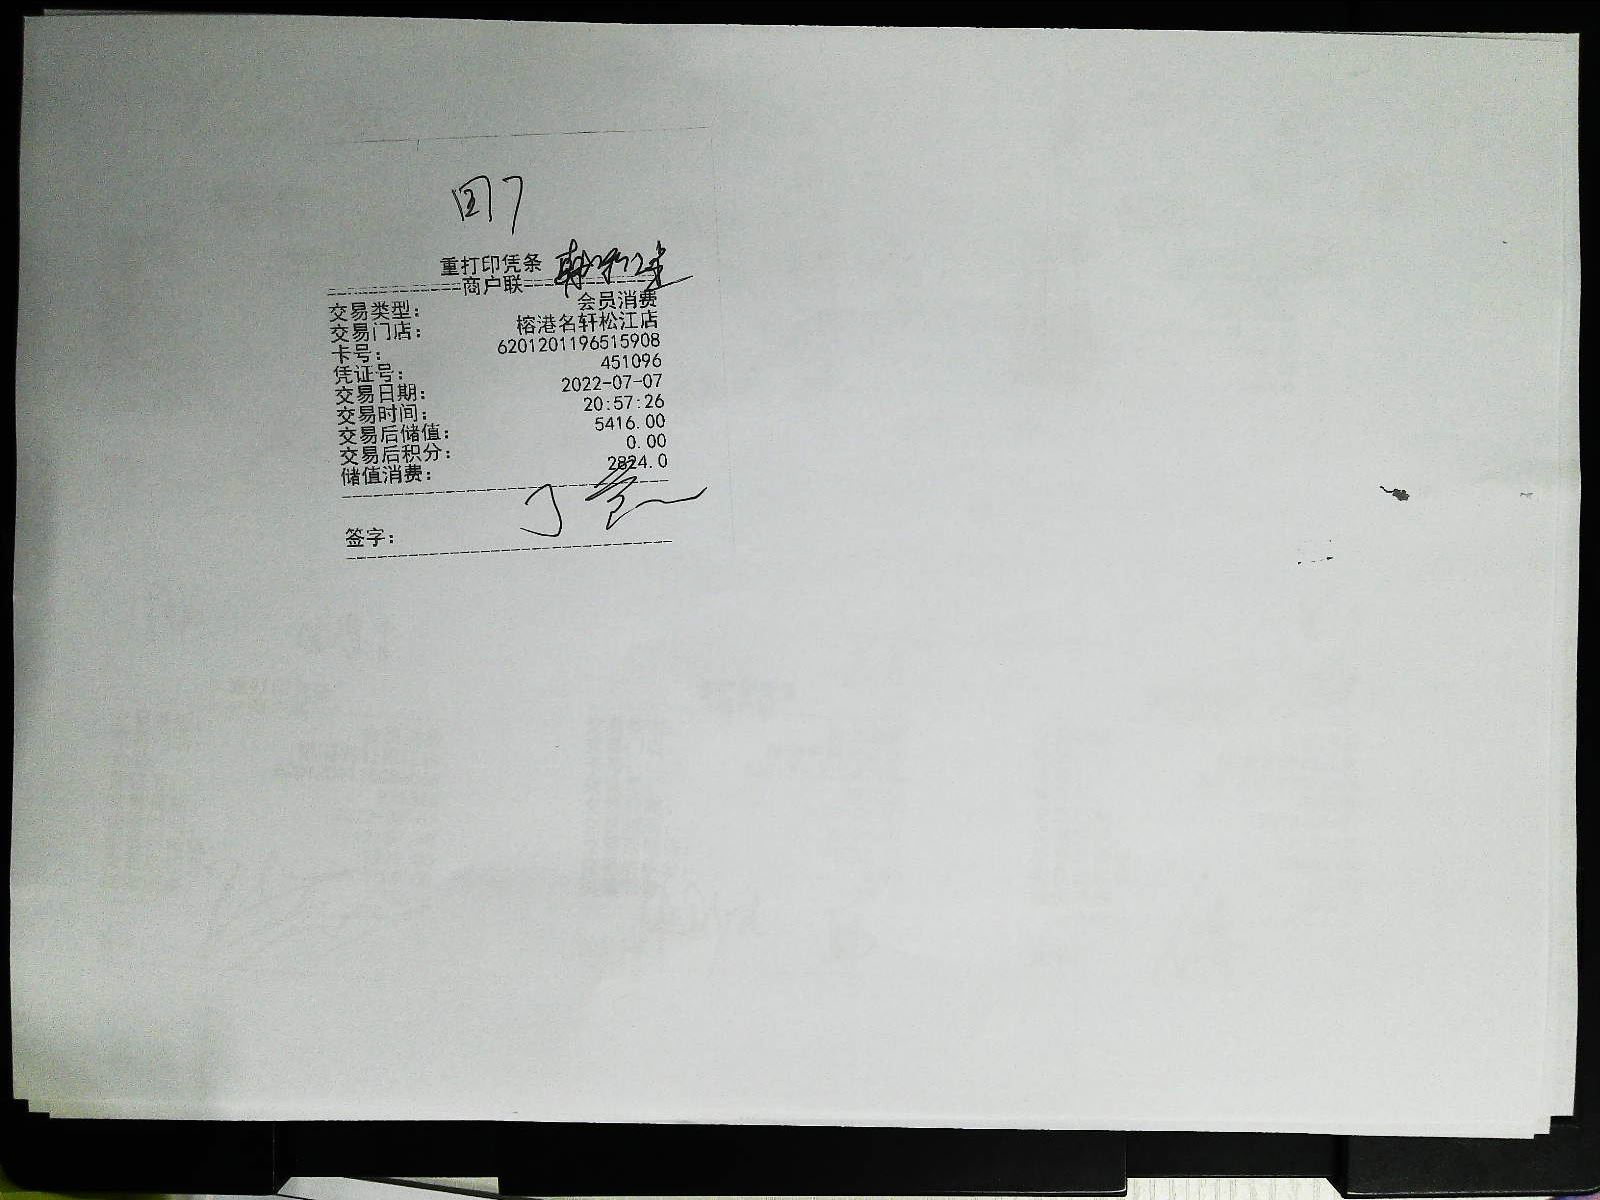 重打印凭条
============商户联============
交易类型： 会员消费
交易门店： 榕港名轩松江店
卡号： 6201201196515908
凭证号： 451096
交易日期： 2022-07-07
交易时间： 20:57:26
交易后储值： 5416.00
交易后积分： 0.00
储值消费： 2824.0
签字：